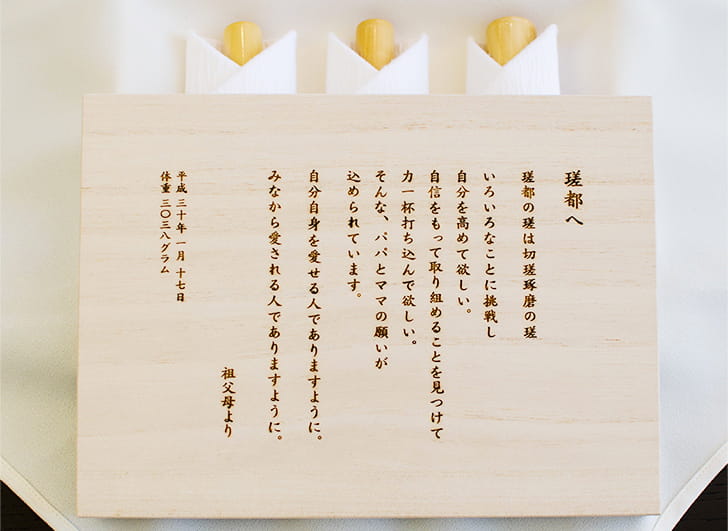 瑳都へ
瑳都の瑳は切瑳琢磨の瑳
いろいろなことに挑戦し
自分を高めて欲しい。
自信をもって取り組めることを見つけて
力一杯打ち込んで欲しい。
そんな、パパとママの願いが
込められています。
自分自身を愛せる人でありますように。
みなから愛される人でありますように。
祖父母より
平成 三十年 一月 十七日
体重 三〇三八グラム